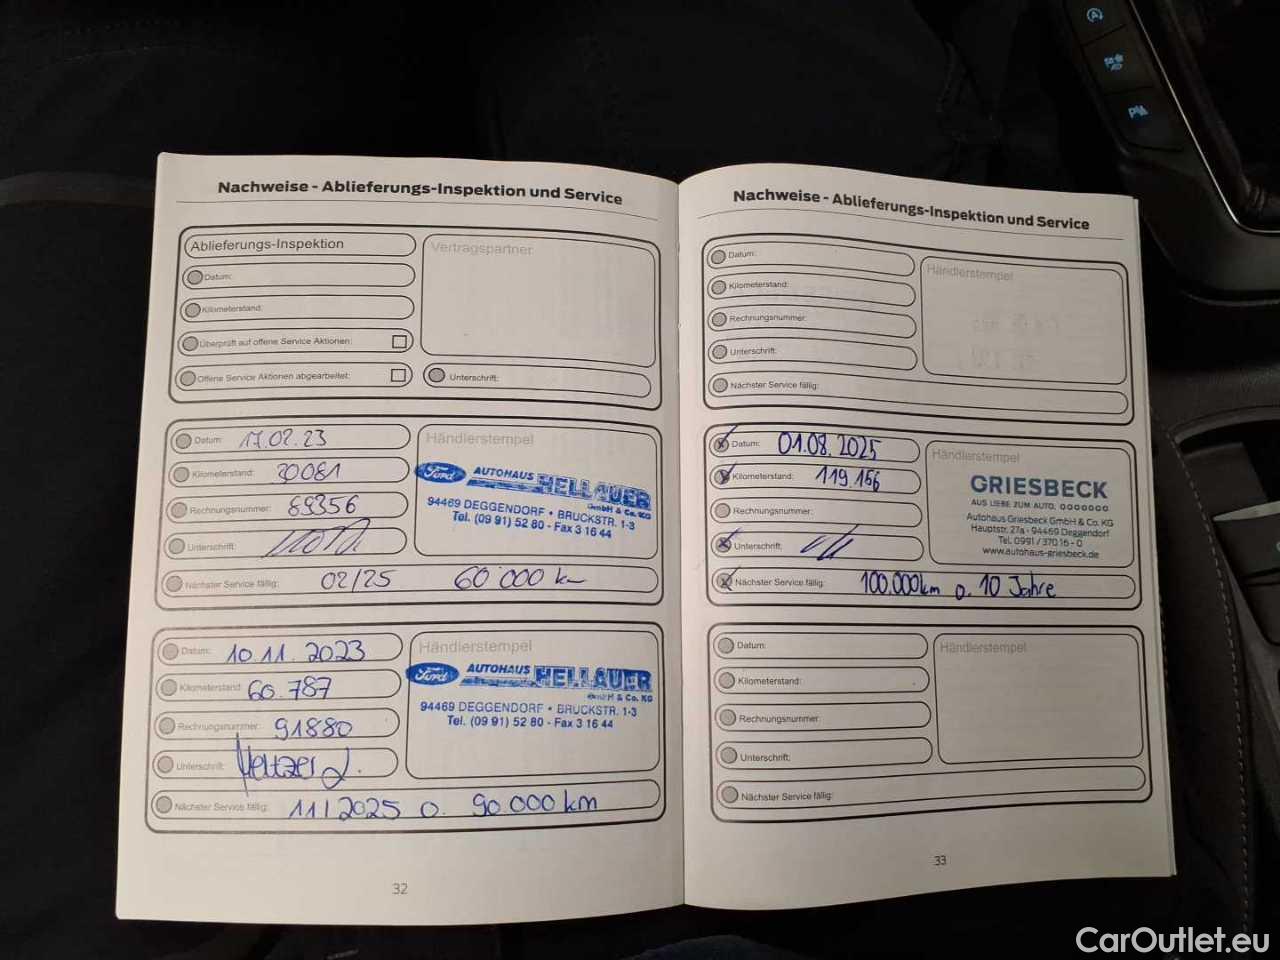 Nachweise - Ablieferungs-Inspektion und Service
Ablieferungs-Inspektion
Vertragspartner
Datum:
Kilometerstand:
Überprüft auf offene Service Aktionen:
Offene Service Aktionen abgearbeitet:
Unterschrift:
Datum: 17.02.23
Händlerstempel
Kilometerstand: 30081
Ford AUTOHAUS HELLAUER
GmbH & Co. KG
94469 DEGGENDORF • BRUCKSTR. 1-3
Tel. (09 91) 52 80 - Fax 3 16 44
Rechnungsnummer: 89356
Unterschrift:
Nächster Service fällig: 02/25 60 000 km
Datum: 10.11.2023
Händlerstempel
Kilometerstand: 60.787
Ford AUTOHAUS HELLAUER
GmbH & Co. KG
94469 DEGGENDORF • BRUCKSTR. 1-3
Tel. (09 91) 52 80 - Fax 3 16 44
Rechnungsnummer: 91880
Unterschrift:
Nächster Service fällig: 11/2025 o. 90.000 km
32
Nachweise - Ablieferungs-Inspektion und Service
Datum:
Händlerstempel
Kilometerstand:
Rechnungsnummer:
Unterschrift:
Nächster Service fällig:
Datum: 01.08.2025
Händlerstempel
Kilometerstand: 119.156
GRIESBECK
AUS LIEBE ZUM AUTO.
Autohaus Griesbeck GmbH & Co. KG
Hauptstr. 27a - 94469 Deggendorf
Tel. 0991 / 370 16 - 0
www.autohaus-griesbeck.de
Rechnungsnummer:
Unterschrift:
Nächster Service fällig: 100.000km o. 10 Jahre
Datum:
Händlerstempel
Kilometerstand:
Rechnungsnummer:
Unterschrift:
Nächster Service fällig:
33
CarOutlet.eu